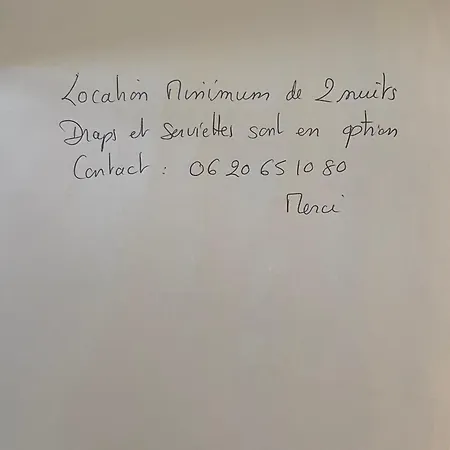 Location Minimum de 2 nuits
Draps et Serviettes sont en option
Contact : 06 20 65 10 80
Merci